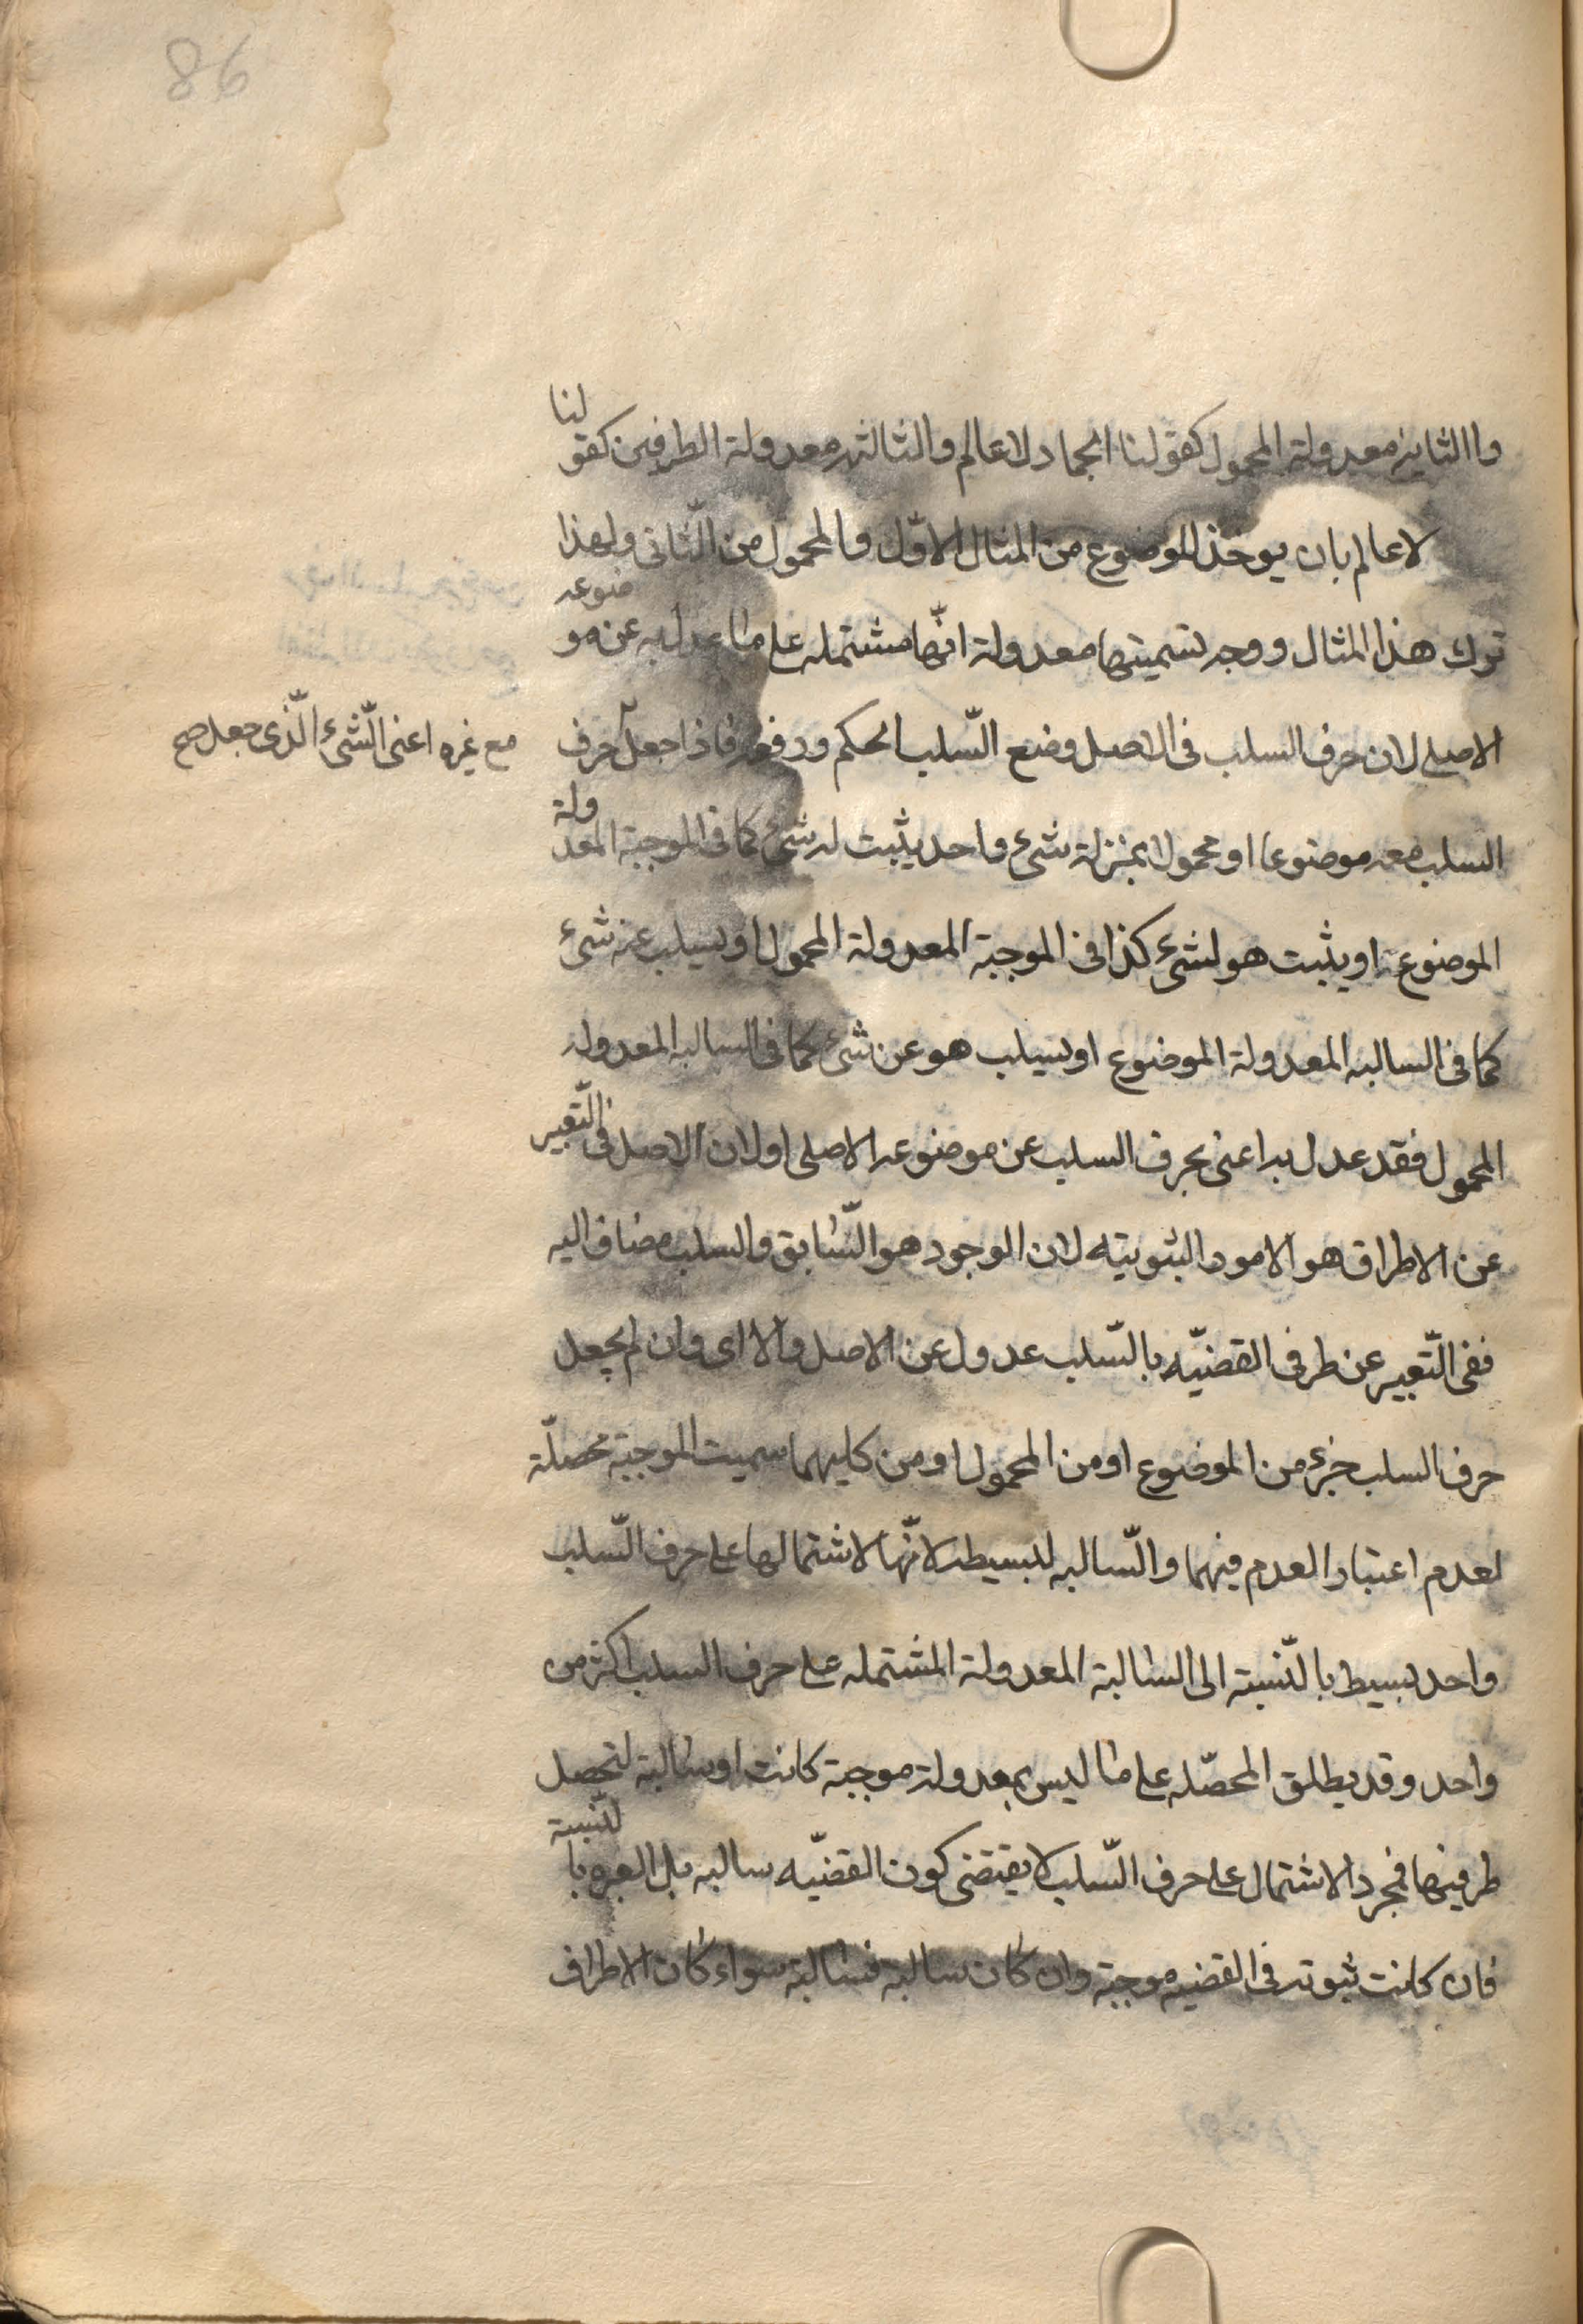 98
واالثانية معدولة المحمول كقولنا الجماد لا عالم والثالثه معدولة الطرفين كقولنا
لا عالم بان يوخذ الموضوع من المثال الاوّل والمحمول من الثّانى ولهذا
ترك هذا المثال ووجه تسميتها معدولة انّها مشتمله على ما عدل به عن موضوعه
الاصلى لان حرف السلب فى الاصل وضع السّلب الحكم ورفعه فاذا جعل حرف
مع غيره اعنى الّشىء الّذى جعل صح
السلب معه موضوعا او محمولا بمنزلة شىء واحد يثبت له شىء كما فى الموجبة المعدولة
الموضوع او يثبت هو لشىء كذا فى الموجبة المعدولة المحمول او يسلب عنه شىء
كما فى السالبه المعدولة الموضوع او يسلب هو عن شىء كما فى السالبه المعدوله
المحمول فقد عدل به اعنى بحرف السلب عن موضوعه الاصلى اولان الاصل فى التّعبير
عن الاطراف هو الامور الثبوتيته لان الوجود هو السّابق والسلب مضاف اليه
ففى التّعبير عن طرفى القضيّه بالسّلب عدول عن الاصل والا اى وان لم يجعل
حرف السلب جزء من الموضوع او من المحمول او من كليهما سميت الموجبة محصلّة
لعدم اعتبار العدم فيهما والسّالبه لبسيطه لانّها لاشتمالها على حرف السّلب
واحد بسيط بالنّسبة الى السالبة المعدولة المشتمله على حرف السلب اكثر من
واحد وقد يطلق المحصّله على ما ليس بمعدولة موجبة كانت او سالبة لتحصل
طرفيها فمجرد الاشتمال على حرف السّلب لا يقتضى كون القضيّه سالبه بل العبره بالنّسبة
فان كانت ثبوته فى القضيه موجبة وان كان سالبة فسالبة سواء كان الاطراف